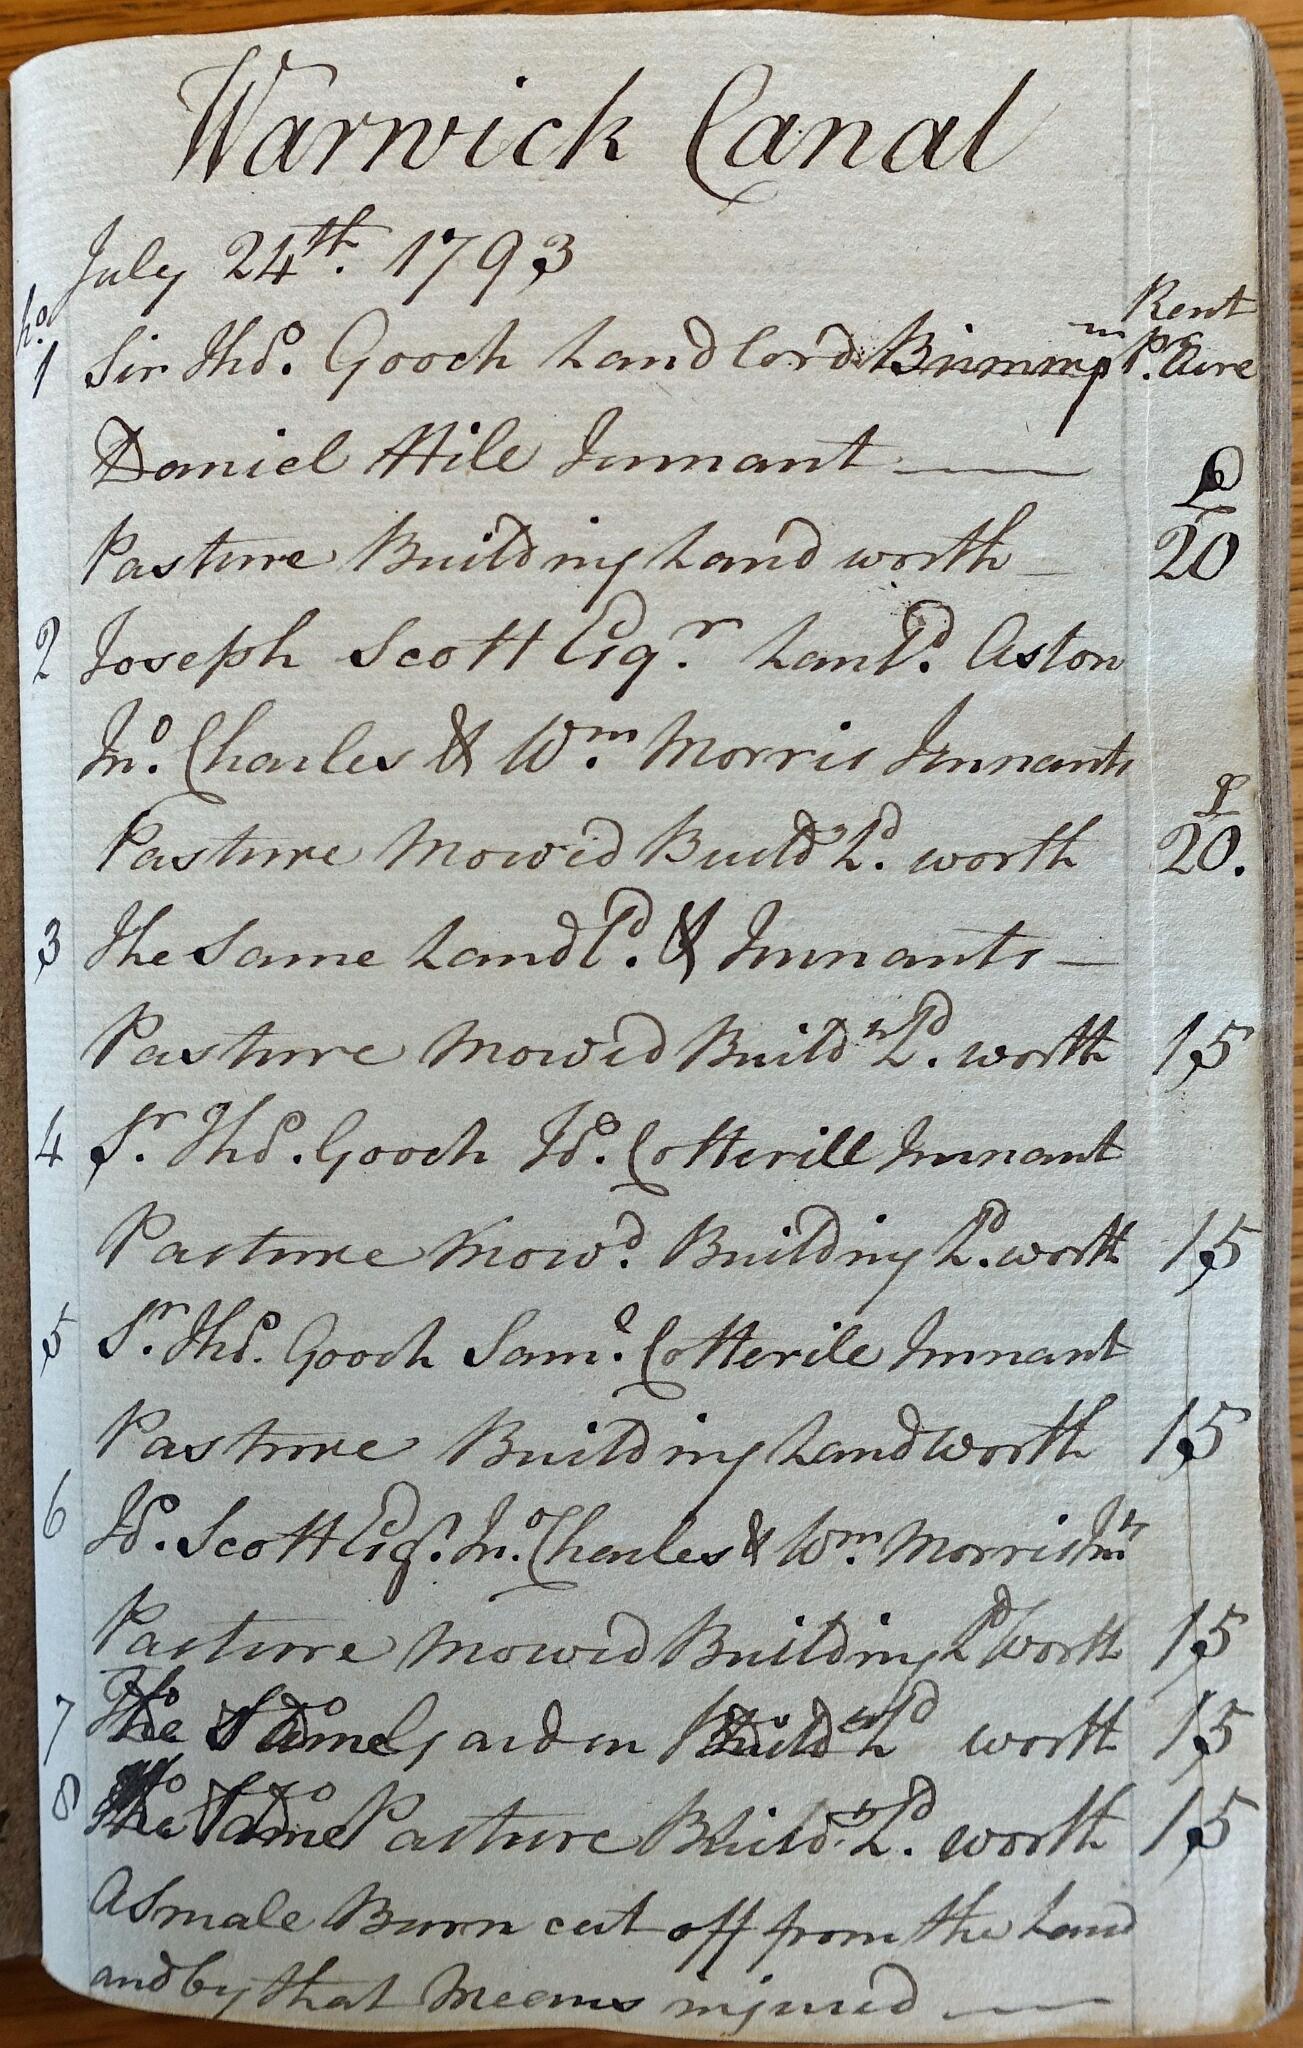 Warwick Canal
July 24th. 1793
No.
Rent
1 Sir Thos. Gooch Landlord Birmingm pr. Acre
Daniel Hile Tennant
£
Pasture Building Land worth 20
2 Joseph Scott Esqr. Lanld. Aston
Jno. Charles & Wm. Morris Tennants
£
Pasture Mow'd Build L'd. worth 20.
3 The Same Landld. & Tennants
Pasture Mowed Build'n Ld. worth 15
4 Sr. Thos. Gooch Jos. Cotterill Tennant
Pasture Mowd. Building Ld. worth 15
5 Sr. Thos. Gooch Saml. Cotterile Tennant
Pasture Building Land worth 15
6 Jos. Scott Esqr. Jno. Charles & Wm. Morris Tnts
Pasture Mowed Building Ld worth 15
7 The Same Garden Build Ld worth 15
8 The Same Pasture Build. Ld. worth 15
A Smale Burn cut off from the Land
and by that Means injured